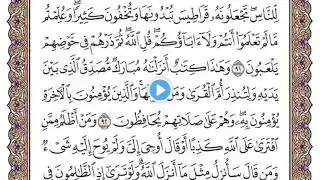 لِلنَّاسِ تَجْعَلُونَهُ قَرَاطِيسَ تُبْدُونَهَا وَتُخْفُونَ كَثِيرًا وَعُلِّمْتُم
مَّا لَمْ تَعْلَمُوا أَنتُمْ وَلَا آبَاؤُكُمْ قُلِ اللَّهُ ثُمَّ ذَرْهُمْ فِي خَوْضِهِمْ
يَلْعَبُونَ ٩١ وَهَٰذَا كِتَابٌ أَنزَلْنَاهُ مُبَارَكٌ مُّصَدِّقُ الَّذِي بَيْنَ
يَدَيْهِ وَلِتُنذِرَ أُمَّ الْقُرَىٰ وَمَنْ حَوْلَهَا وَالَّذِينَ يُؤْمِنُونَ بِالْآخِرَةِ
يُؤْمِنُونَ بِهِ وَهُمْ عَلَىٰ صَلَاتِهِمْ يُحَافِظُونَ ٩٢ وَمَنْ أَظْلَمُ مِمَّنِ
افْتَرَىٰ عَلَى اللَّهِ كَذِبًا أَوْ قَالَ أُوحِيَ إِلَيَّ وَلَمْ يُوحَ إِلَيْهِ شَيْءٌ
وَمَن قَالَ سَأُنزِلُ مِثْلَ مَا أَنزَلَ اللَّهُ وَلَوْ تَرَىٰ إِذِ الظَّالِمُونَ فِي